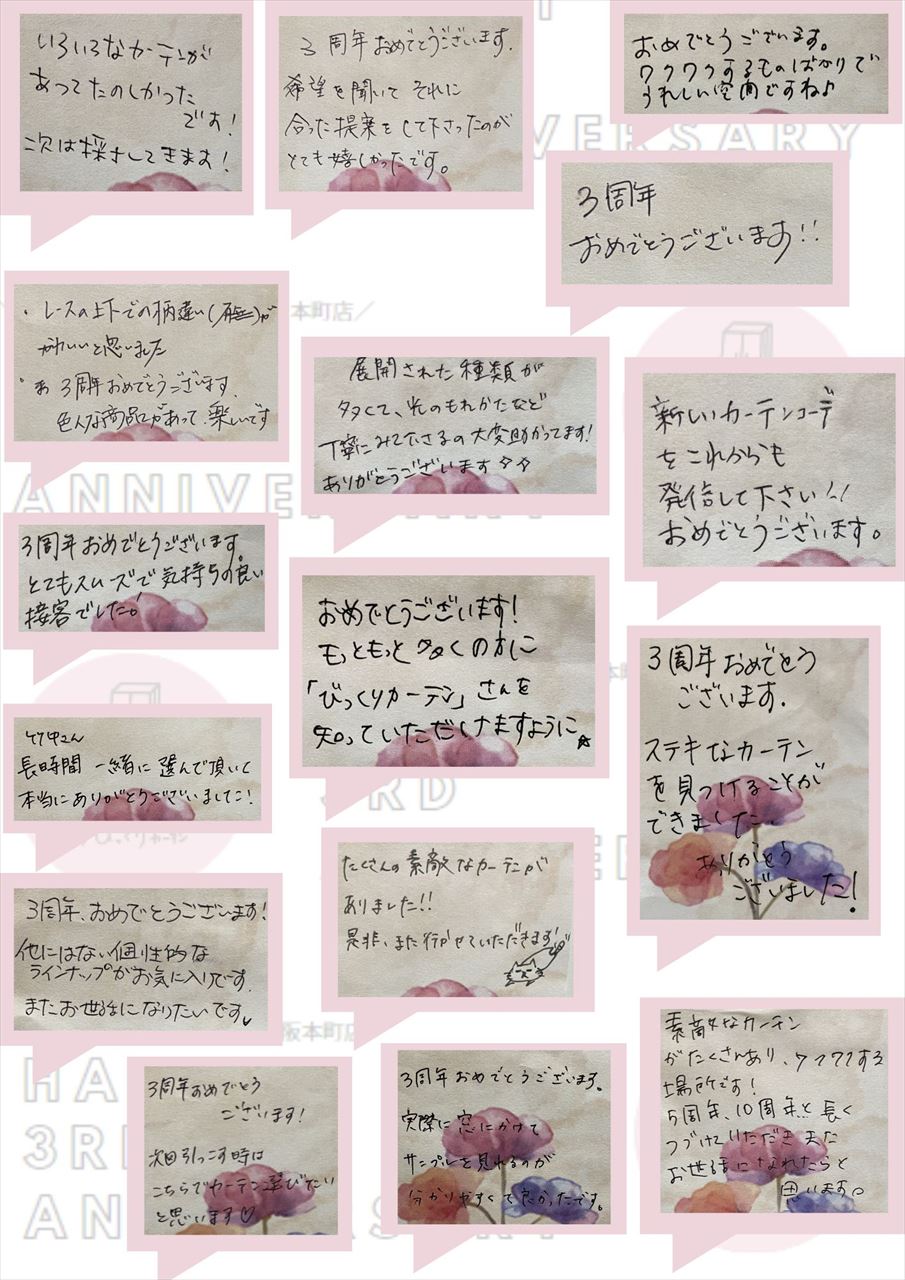 いろいろなカーテンが
あってたのしかった
です!
次は採寸してきます!
3周年おめでとうございます.
希望を聞いて それに
合った提案をして下さったのが
とても嬉しかったです。
おめでとうございます。
ワクワクするものばかりで
うれしい空間ですね♪
3周年
おめでとうございます!!
・レースの上下での柄違い(
かわいいと思いました
3周年おめでとうございます
色んな商品があって、楽しいです
展開された種類が
多くて、光のもれかたなど
丁寧にみて下さるの大変助かってます!
ありがとうございます☆☆
新しいカーテンコーデ
をこれからも
発信して下さい!!
おめでとうございます。
3周年おめでとうございます。
とてもスムーズで気持ちの良い
接客でした!
おめでとうございます!
もっともっと多くの方に
「びっくりカーテン」さんを
知っていただけますように☆
3周年おめでとう
ございます.
ステキなカーテン
を見つけることが
できました.
ありがとう
ございました!
竹中さん
長時間 一緒に選んで頂いて
本当にありがとうございました!
たくさんの素敵なカーテンが
ありました!!
是非、また行かせていただきます!
3周年、おめでとうございます!
他にはない個性的な
ラインナップがお気に入りです.
またお世話になりたいです
3周年おめでとう
ございます!
次回引っこす時は
こちらでカーテン選びたい
と思います♡
3周年おめでとうございます.
実際に窓にかけて
サンプルを見れるのが
分かりやすくて良かったです。
素敵なカーテン
がたくさんあり、ワクワクする
場所です!
5周年、10周年と長く
つづけていただきまた
お世話になれたらと
思います。
本町店/
ANNIVE
VERSARY
3RD
阪本町店
HA
3R
AN